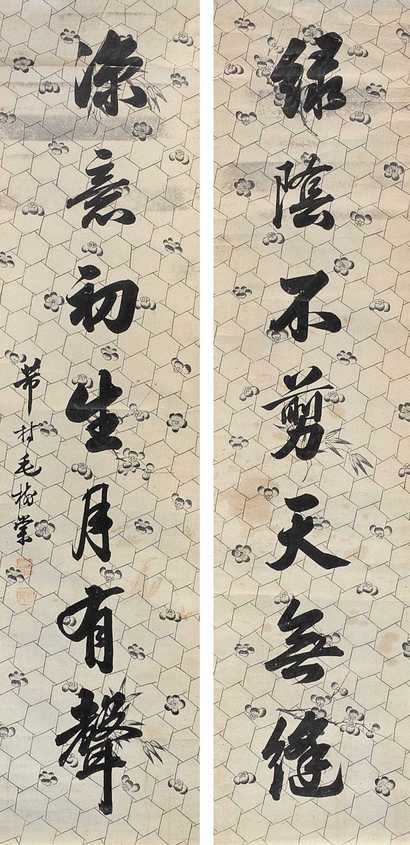 緑陰不剪天無縫
涼意初生月有聲
芾村毛梅棠